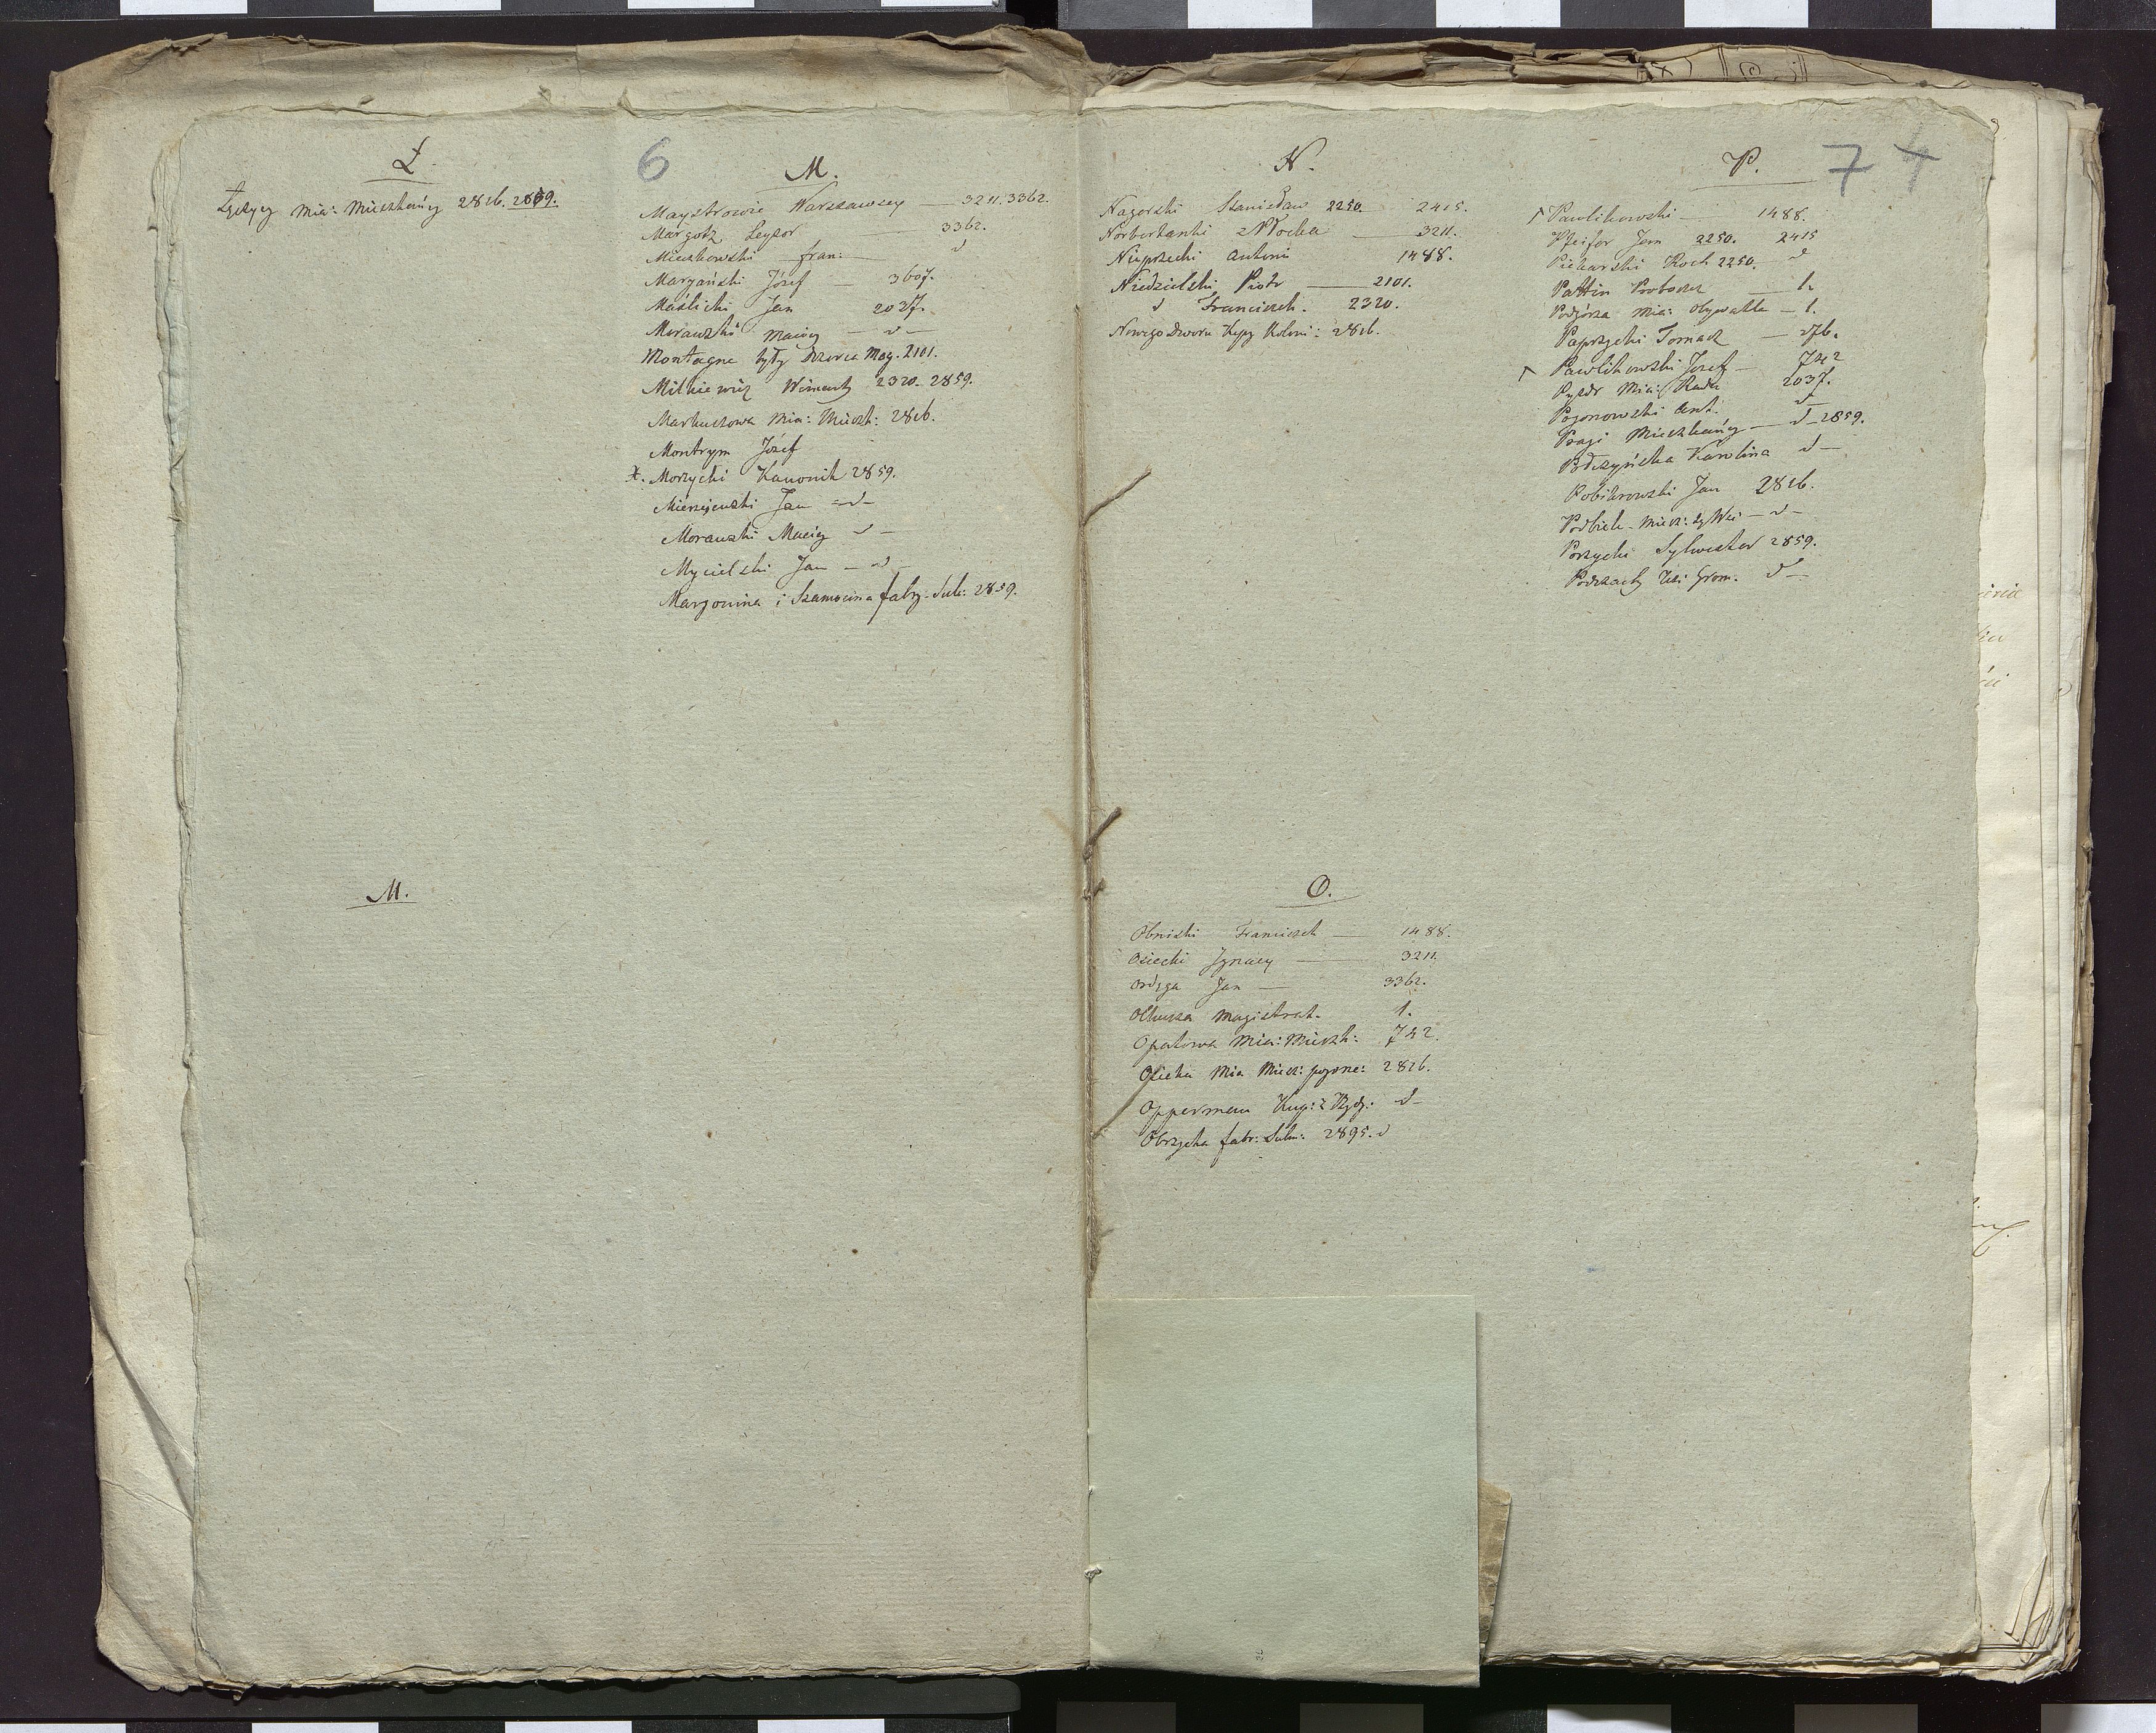 Ł.
Łęczycy Mia: Mieszkańcy 2826. 2859.
M.
6
M.
Maystrowie Warszawscy — 3211. 3362.
Margotz Leyzor — 3362.
Mieszkowski fran: — d
Margański Józef — 3607.
Maślicki Jan 2037.
Morawski Maciey — d —
Montagne były Dzorca Mag. 2101.
Milkiewicz Wincenty 2320. 2859.
Markuszowa Mia: Mieszk: 2826.
Montrym Józef
X. Morzycki Kanonik 2859.
Mierzejewski Jan = d —
Morawski Maciey d —
Mycielski Jan — d —
Margonina i Szamocina fabry. Suk: 2859.
N.
Nagorski Stanisław 2250. 2415.
Norbertanki z Płocka — 3211.
Nieprzecki Antoni 1488.
Niedzielski Piotr — 2101.
d Franciszek. 2320.
Nowego Dworu Kępy Koloni: 2826.
O.
Obniski Franciszek — 1488.
Osiecki Jgnacy — 3211.
Ordęga Jan — 3362.
Olkusza Magistrat. 1.
Opatowa Mia: Mieszk: 742.
Osieka Mia Miesz: pogorze: 2826.
Opperman Kup: z Bydg: d —
Obrzycka fabr: Sukn: 2895. d
P.
7 4
Pawlikowski — 1488.
Pfeifer Jan 2250. 2415
Piekarski Roch 2250. d
Pattin Proboszcz — 1.
Podgórza Mia: Obywatele — 1.
Paprzycki Tomasz — 276.
Pawlikowski Jozef — 742
Pyzdr Mia: Rada 2037.
Pogonowski Ant. d
Pragi Mieszkańcy — d — 2859.
Podczyńska Karolina d —
Pobikrowski Jan 2826.
Podbiel. Miesz: tey Wsi — d —
Porzycki Sylwester 2859.
Podszacty Wsi Grom. d —